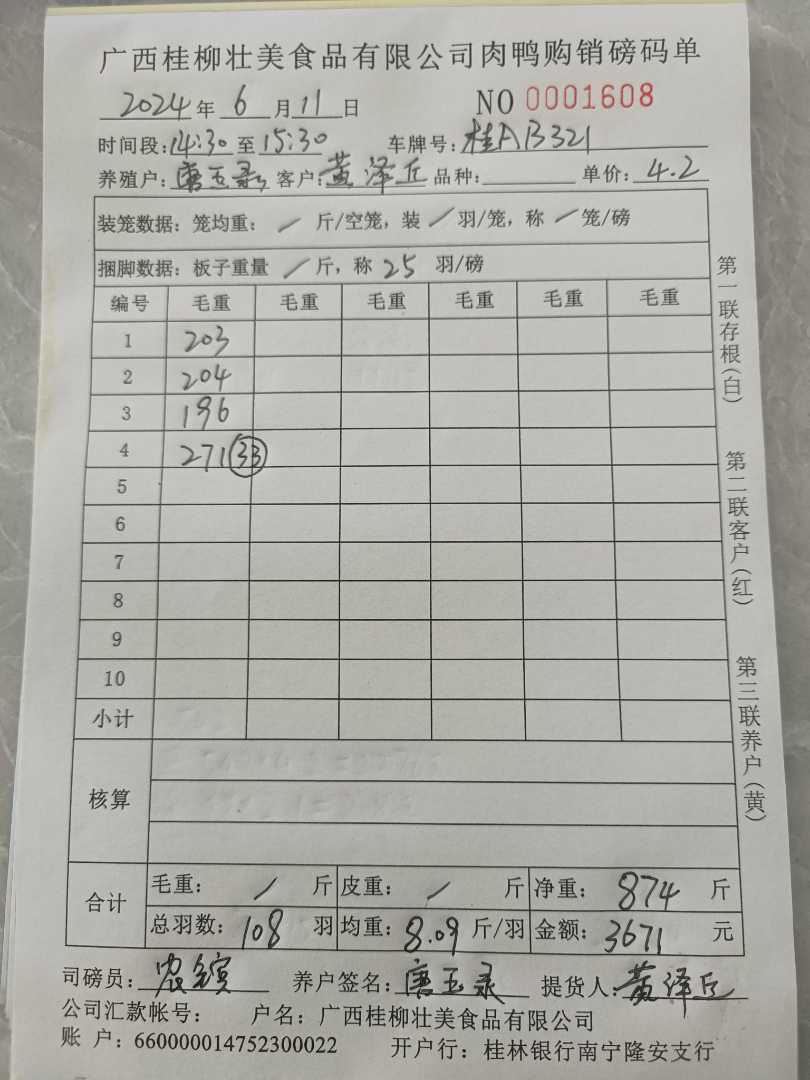 广西桂柳壮美食品有限公司肉鸭购销磅码单
2024年 6 月 11 日 NO 0001608
时间段:14:30 至 15:30 车牌号:桂AB321
养殖户:唐玉录 客户:黄泽丘 品种: 单价:4.2
装笼数据: 笼均重: / 斤/空笼, 装 / 羽/笼, 称 / 笼/磅
捆脚数据: 板子重量 / 斤, 称 25 羽/磅
编号 毛重 毛重 毛重 毛重 毛重 毛重
1 203
2 204
3 196
4 271 33
5
6
7
8
9
10
小计
核算
合计
毛重: / 斤 皮重: / 斤 净重: 874 斤
总羽数: 108 羽 均重: 8.09 斤/羽 金额: 3671 元
司磅员: 养户签名: 唐玉录 提货人: 黄泽丘
公司汇款帐号: 户名: 广西桂柳壮美食品有限公司
账 户: 660000014752300022 开户行: 桂林银行南宁隆安支行
第一联存根(白)
第二联客户(红)
第三联养户(黄)